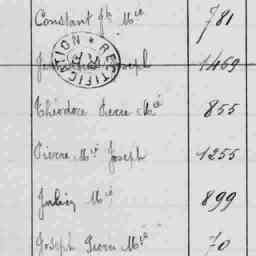 Constant fs Mie 781
RECTIFICATION Joseph 1469
Théodore Pierre Mie 855
Pierre Mie Joseph 1255
Julien Mie 899
Joseph Pierre Mie 70